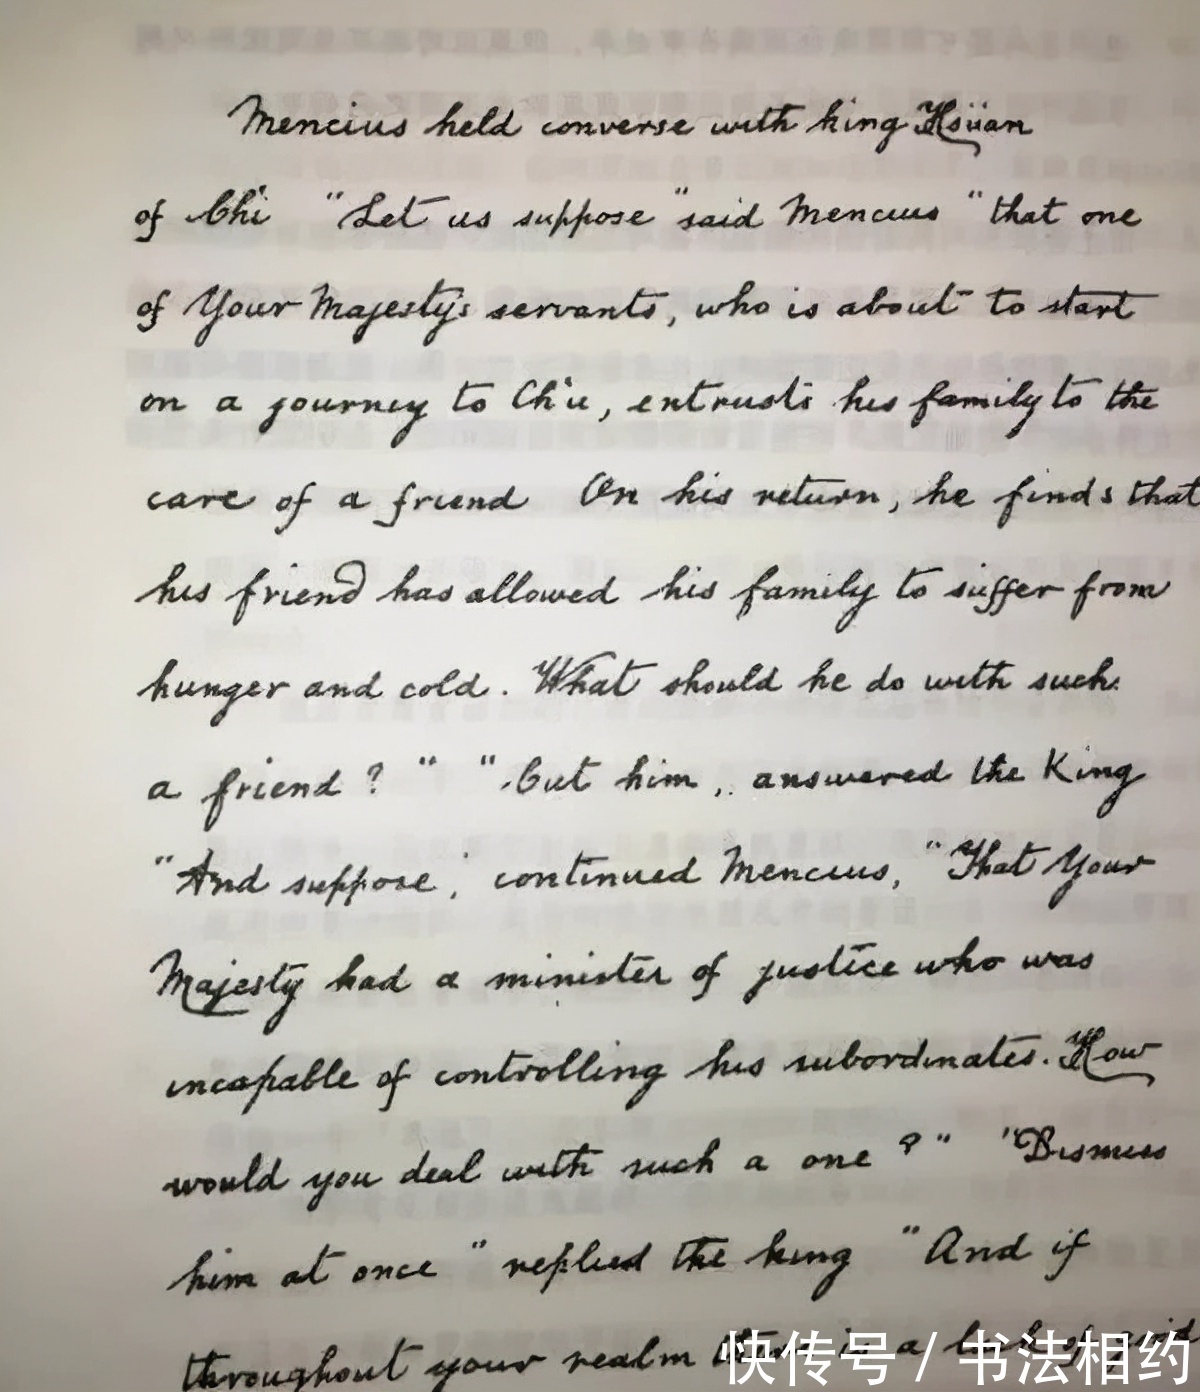 Mencius held converse with king Hsüan
of Ch'i "Let us suppose "said Mencius "that one
of Your Majesty's servants, who is about to start
on a journey to Ch'u, entrusts his family to the
care of a friend On his return, he finds that
his friend has allowed his family to suffer from
hunger and cold. What should he do with such
a friend? " "Cut him, answered the King
"And suppose, continued Mencius, "That Your
Majesty had a minister of justice who was
incapable of controlling his subordinates. How
would you deal with such a one ?" "Dismiss
him at once " replied the king "And if
throughout your realm there is a lack of good
快传号 / 书法相约